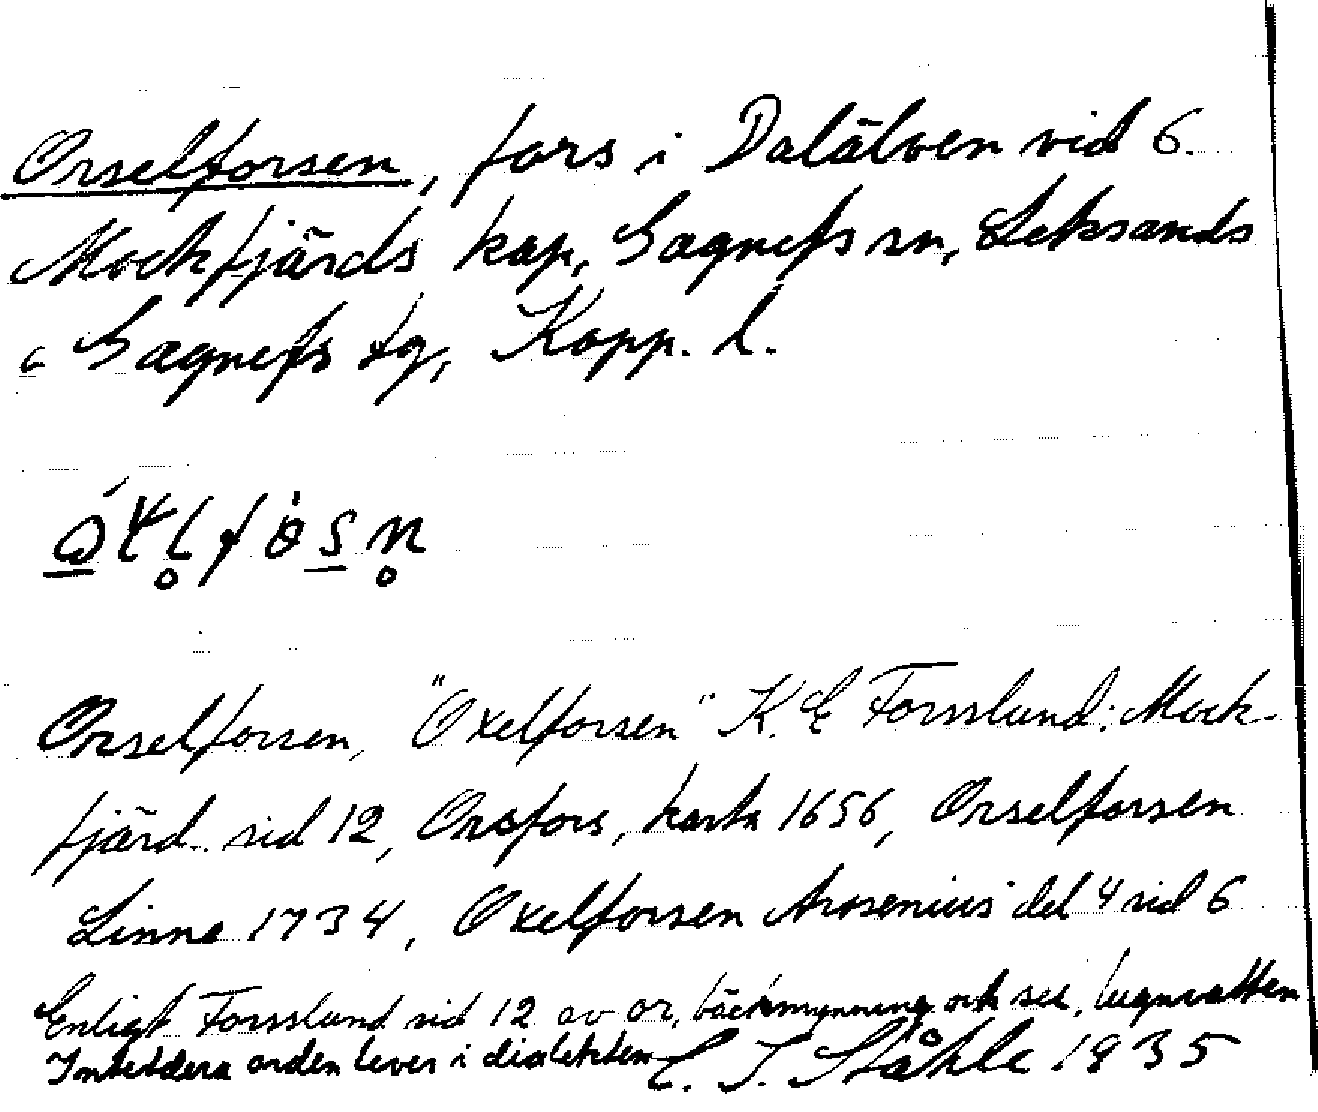 Orselforsen, fors i Dalälven vid 6.
Mockfjärds kap, Gagnefs sn, Leksands
o Gagnefs tg, Kopp. l.
Orselforsen, "Oxelforsen" K. E Forsslund: Mock-
fjärd. sid 12, Orsfors, karta 1656, Orselforsen
Linne 1734, Oxelforsen Arosenius del 4 sid 6
Enligt Forsslund sid 12 av or, bäckmynning och sel, lugnvatten
Inbeddera orden lever i dialekten C. I. Ståhle 1935